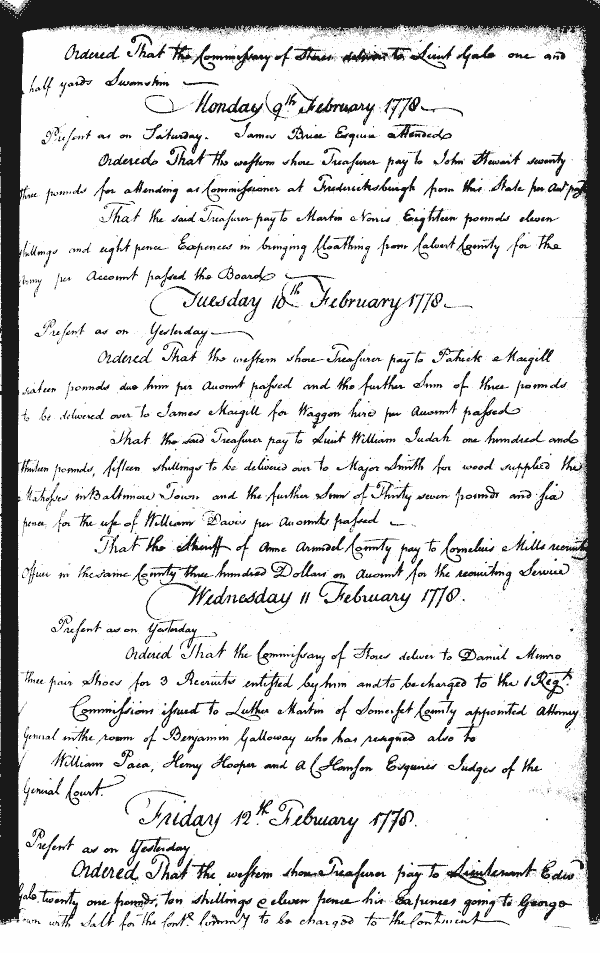 Ordered That the Commissary of Stores deliver to Lieut Gale one and
half yards Swanskin
Monday 9th February 1778
Present as on Saturday. James Brice Esquire Attended
Ordered That the western shore Treasurer pay to John Stewart seventy
three pounds for attending as Commissioner at Fredericksburgh from this State per Act passed
That the said Treasurer pay to Martin Norris Eighteen pounds eleven
shillings and eight pence Expences in bringing Cloathing from Calvert County for the
Army per Account passed the Board
Tuesday 10th February 1778
Present as on Yesterday
Ordered That the western shore Treasurer pay to Patrick Macgill
sixteen pounds due him per Account passed and the further Sum of three pounds
to be delivered over to James Macgill for Waggon hire per Account passed
That the said Treasurer pay to Lieut William Judah one hundred and
thirteen pounds, fifteen shillings to be delivered over to Major Smith for wood supplied the
Matrosses in Baltimore Town and the further Sum of Thirty seven pounds and six
pence for the use of William Davis per Accounts passed
That the Sheriff of Anne Arundel County pay to Cornelius Mills recruiting
Officer in the same County three hundred Dollars on Account for the recruiting Service
Wednesday 11 February 1778.
Present as on Yesterday
Ordered That the Commissary of Stores deliver to Daniel Munro
three pair Shoes for 3 Recruits entisted by him and to be charged to the 1 Regt.
Commissions issued to Luther Martin of Somerset County appointed Attorney
General in the room of Benjamin Galloway who has resigned also to
William Paca, Henry Hooper and A C Hanson Esquires Judges of the
General Court.
Friday 12th February 1778.
Present as on Yesterday
Ordered That the western shore Treasurer pay to Lieutenant Edwd
Gale twenty one pounds, ten shillings & eleven pence his Expences going to George
Town with Salt for the Contl. Commy to be charged to the Continent